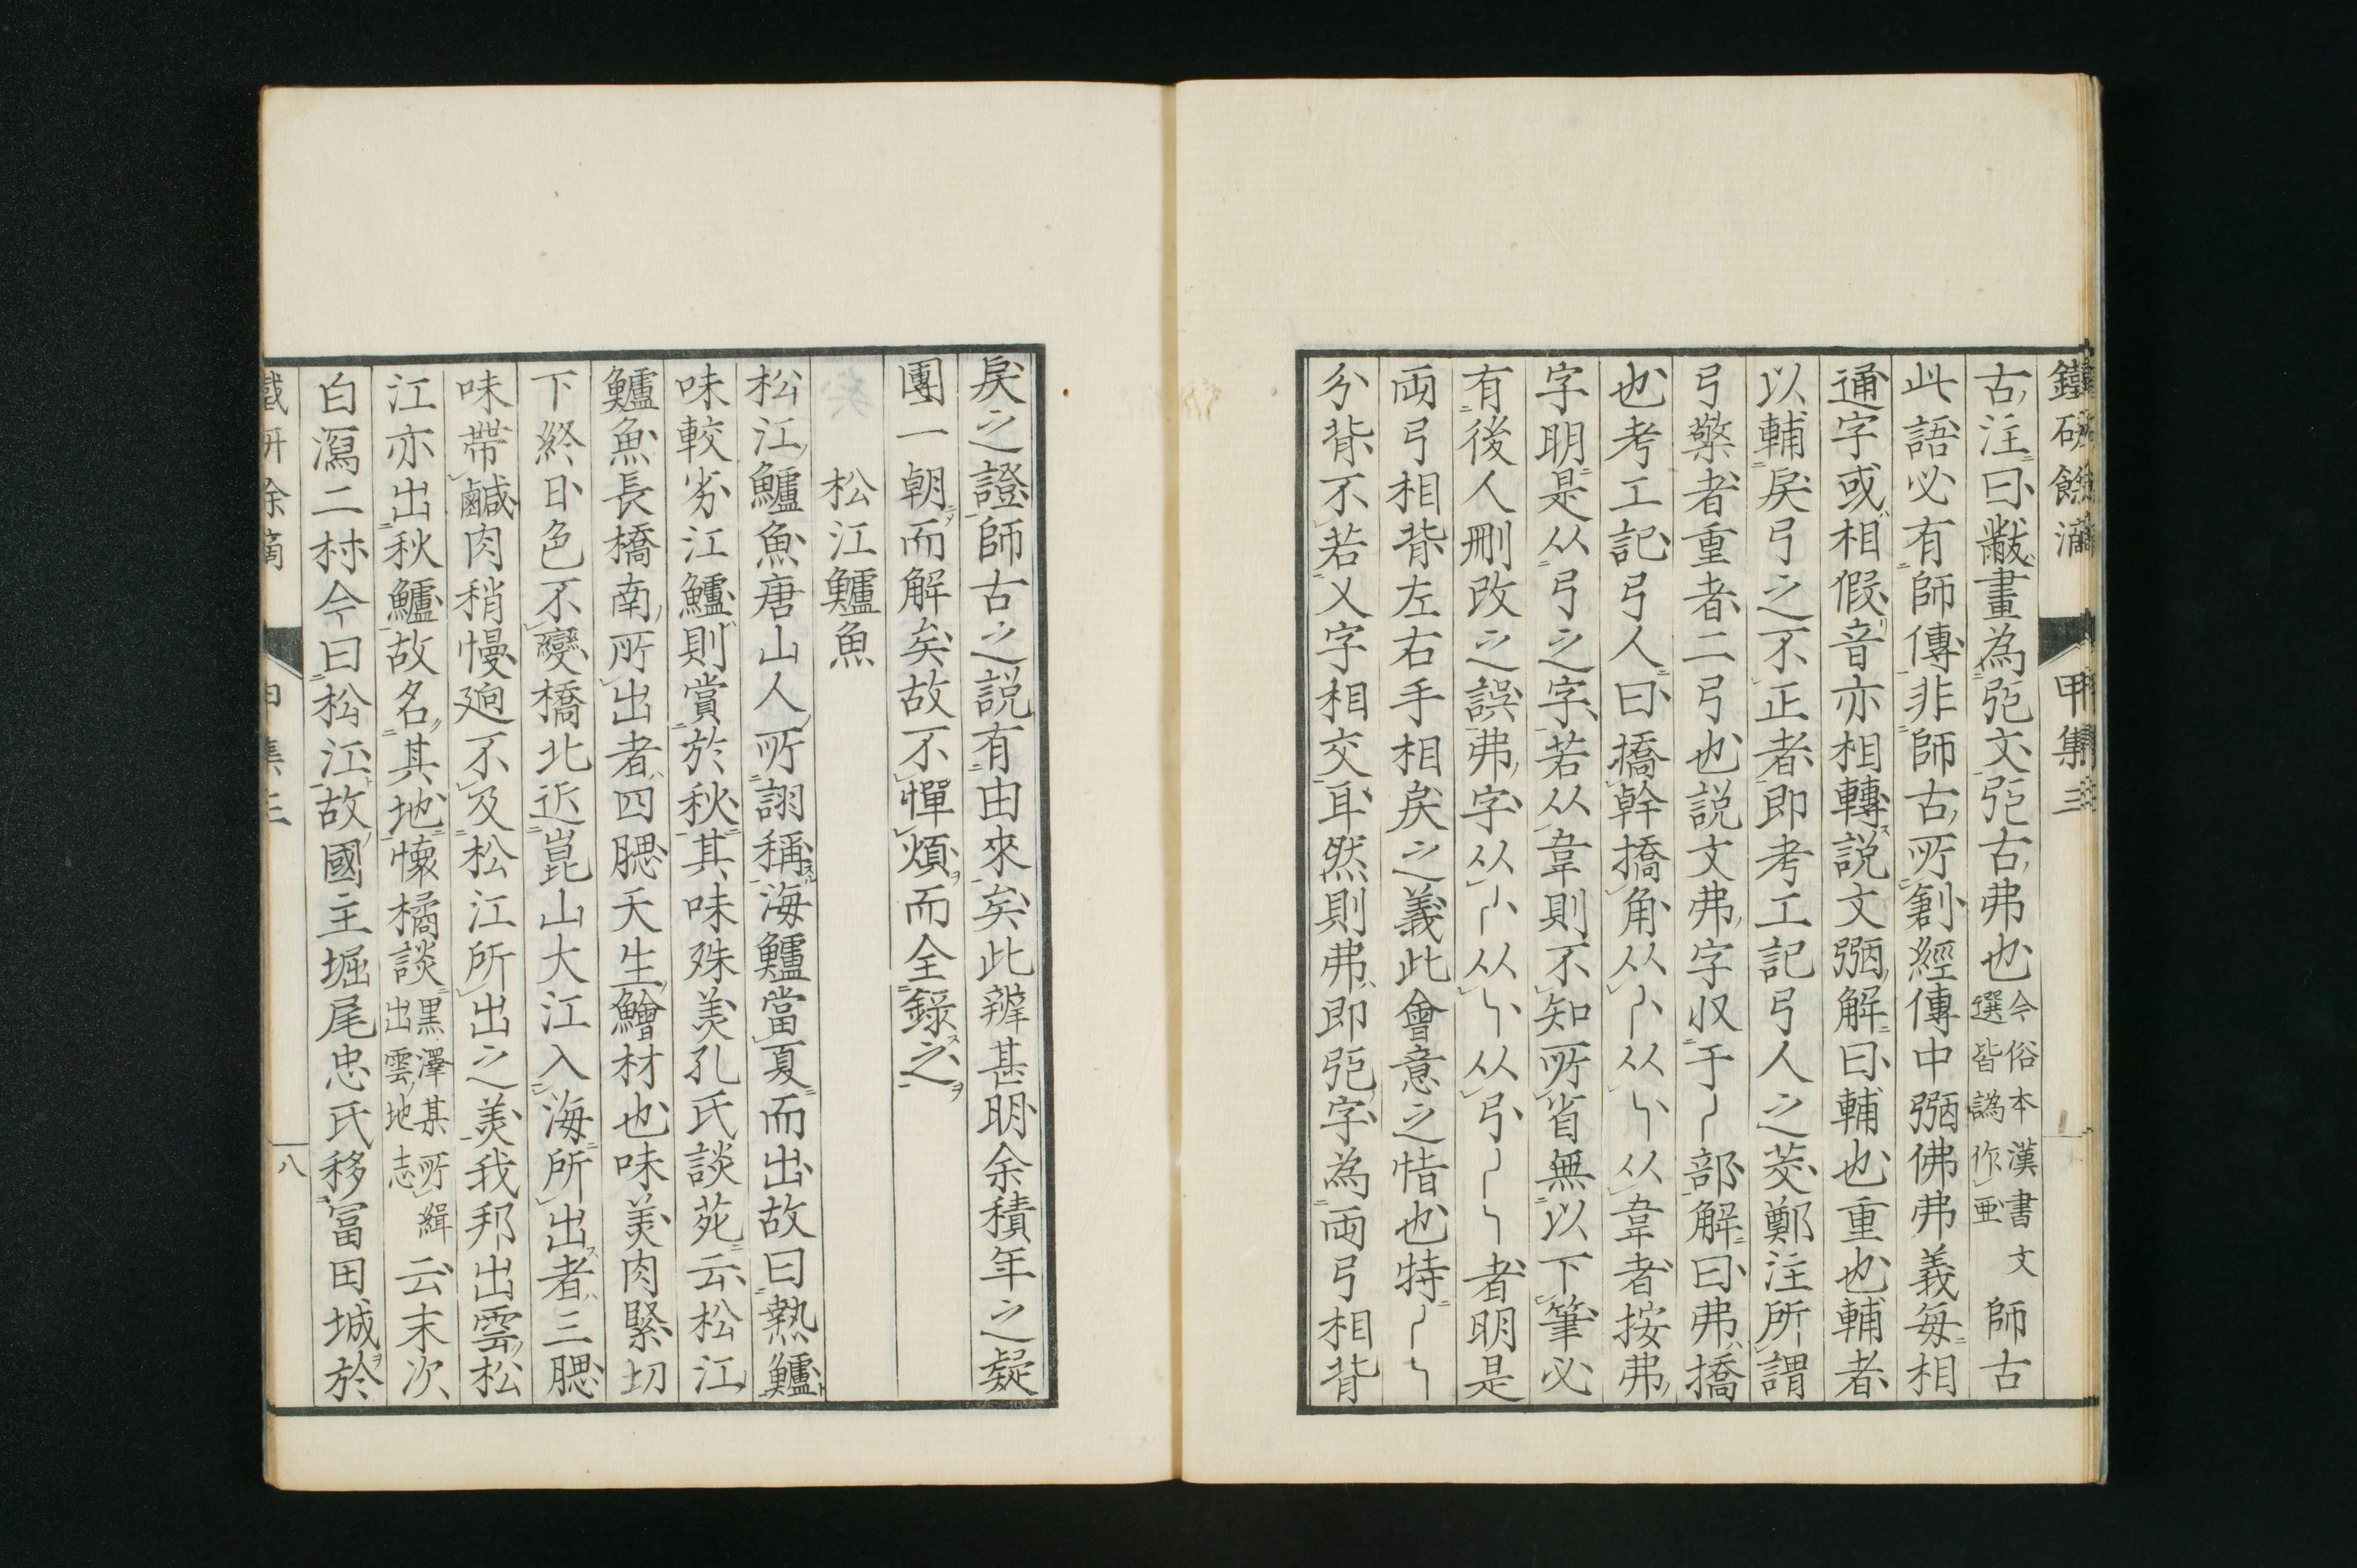 鐵研餘滴 甲集三
古注曰黻畫為𢎺文𢎺古弗也今俗本漢書文選皆譌作亞師古
此語必有師傳非師古所創經傳中弼佛弗義每相
通字或相假音亦相轉説文弼解曰輔也重也輔者
以輔戾弓之不正者即考工記弓人之茭鄭注所謂
弓檠者重者二弓也説文弗字収于丿部解曰弗撟
也考工記弓人曰撟幹撟角从丿从乀从韋者按弗
字明是从弓之字若从韋則不知所省無以下筆必
有後人刪改之誤弗字从丿从乀从弓丿乀者明是
両弓相背左右手相戾之義此會意之恉也特丿乀
分背不若乂字相交耳然則弗即𢎺字為両弓相背
戾之證師古之説有由來矣此辨甚明余積年之疑
團一朝而解矣故不憚煩而全錄之
松江鱸魚
松江鱸魚唐山人所詡稱海鱸當夏而出故曰熱鱸
味較劣江鱸則賞於秋其味殊美孔氏談苑云松江
鱸魚長橋南所出者四腮天生鱠材也味美肉緊切
下終日色不變橋北近崑山大江入海所出者三腮
味帶鹹肉稍慢迥不及松江所出之美我邦出雲松
江亦出秋鱸故名其地懷橘談黒澤某所緝出雲地志云末次
白潟二村今曰松江故國主堀尾忠氏移冨田城於
鐵研餘滴 甲集三 八